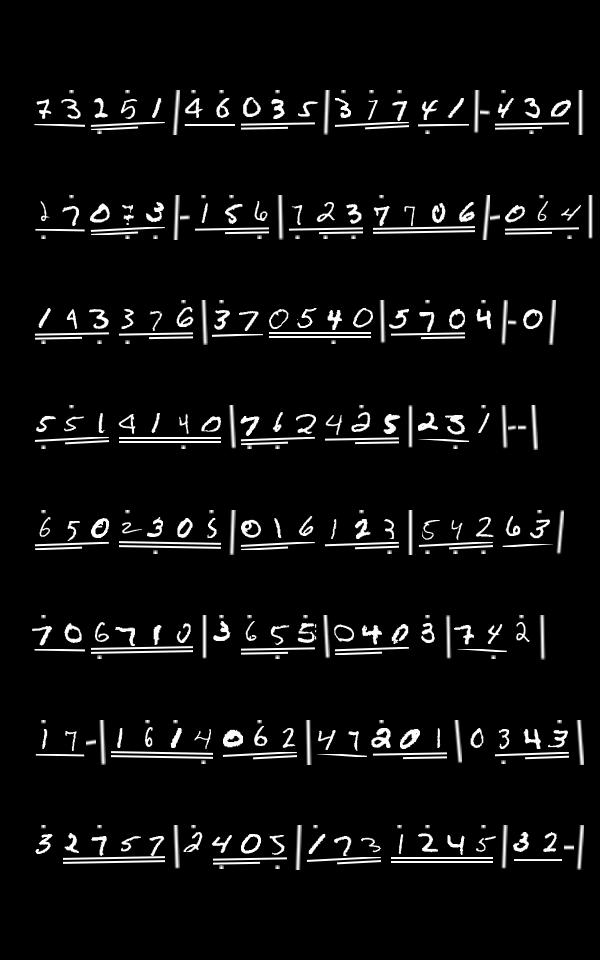 73251|46035|37741|-430
27073|-156|7237706|-064
193376|370540|5704|-0
5514140|762425|231|--
6502305|016123|54263
706710|3655|0403|742
17-|1614062|47201|0343
32757|2405|1731245|32-